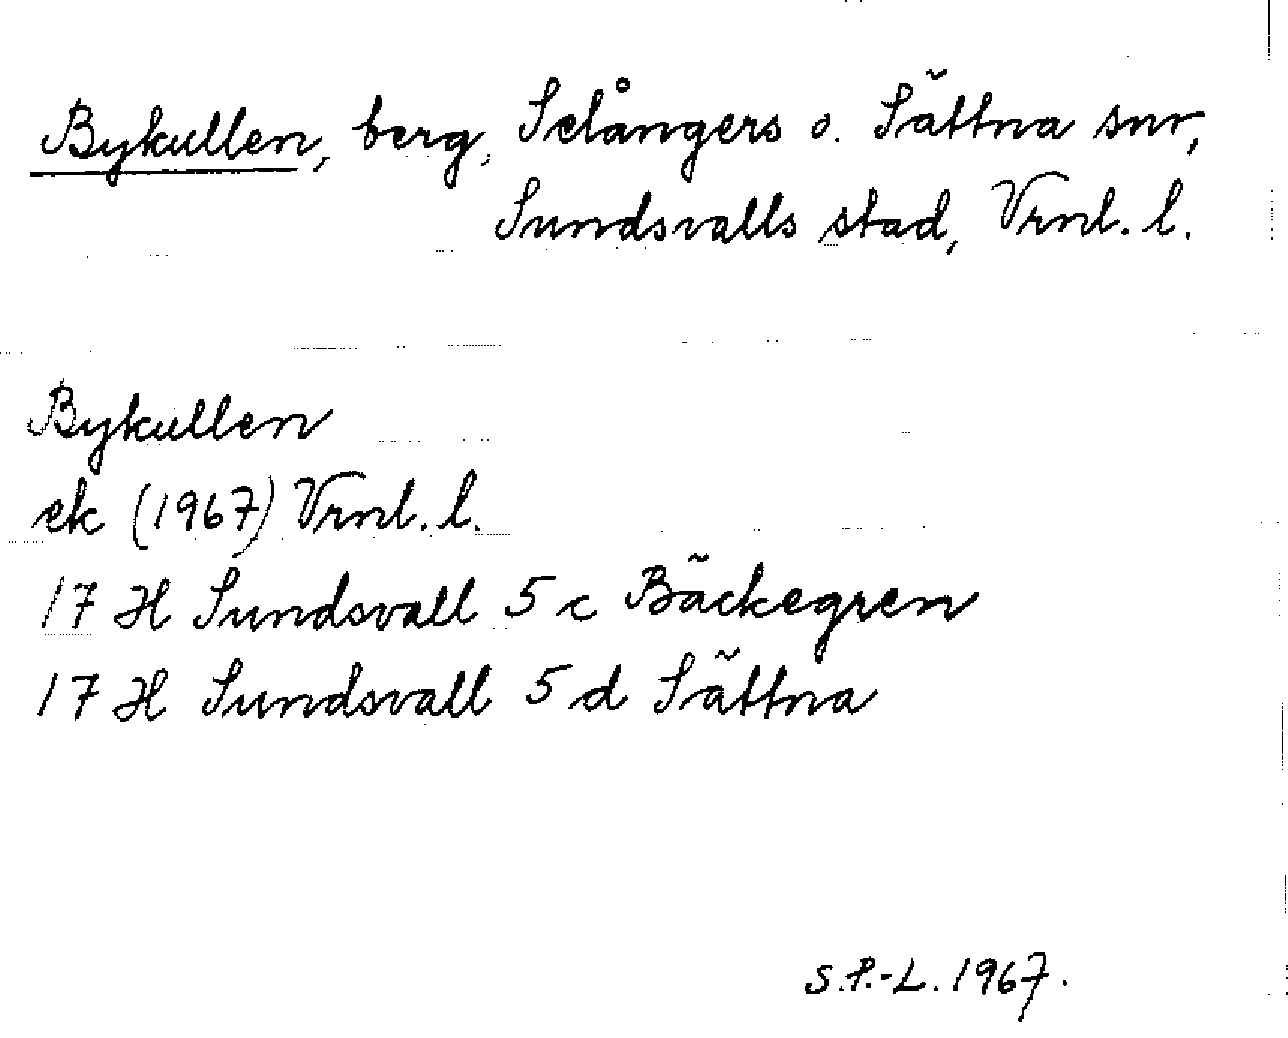 Bykullen, berg, Selångers o. Sättna snr,
Sundsvalls stad, Vrnl. l.
Bykullen
ek (1967) Vrnl. l.
17 H Sundsvall 5 c Bäckegren
17 H Sundsvall 5 d Sättna
S.P.-L. 1967.